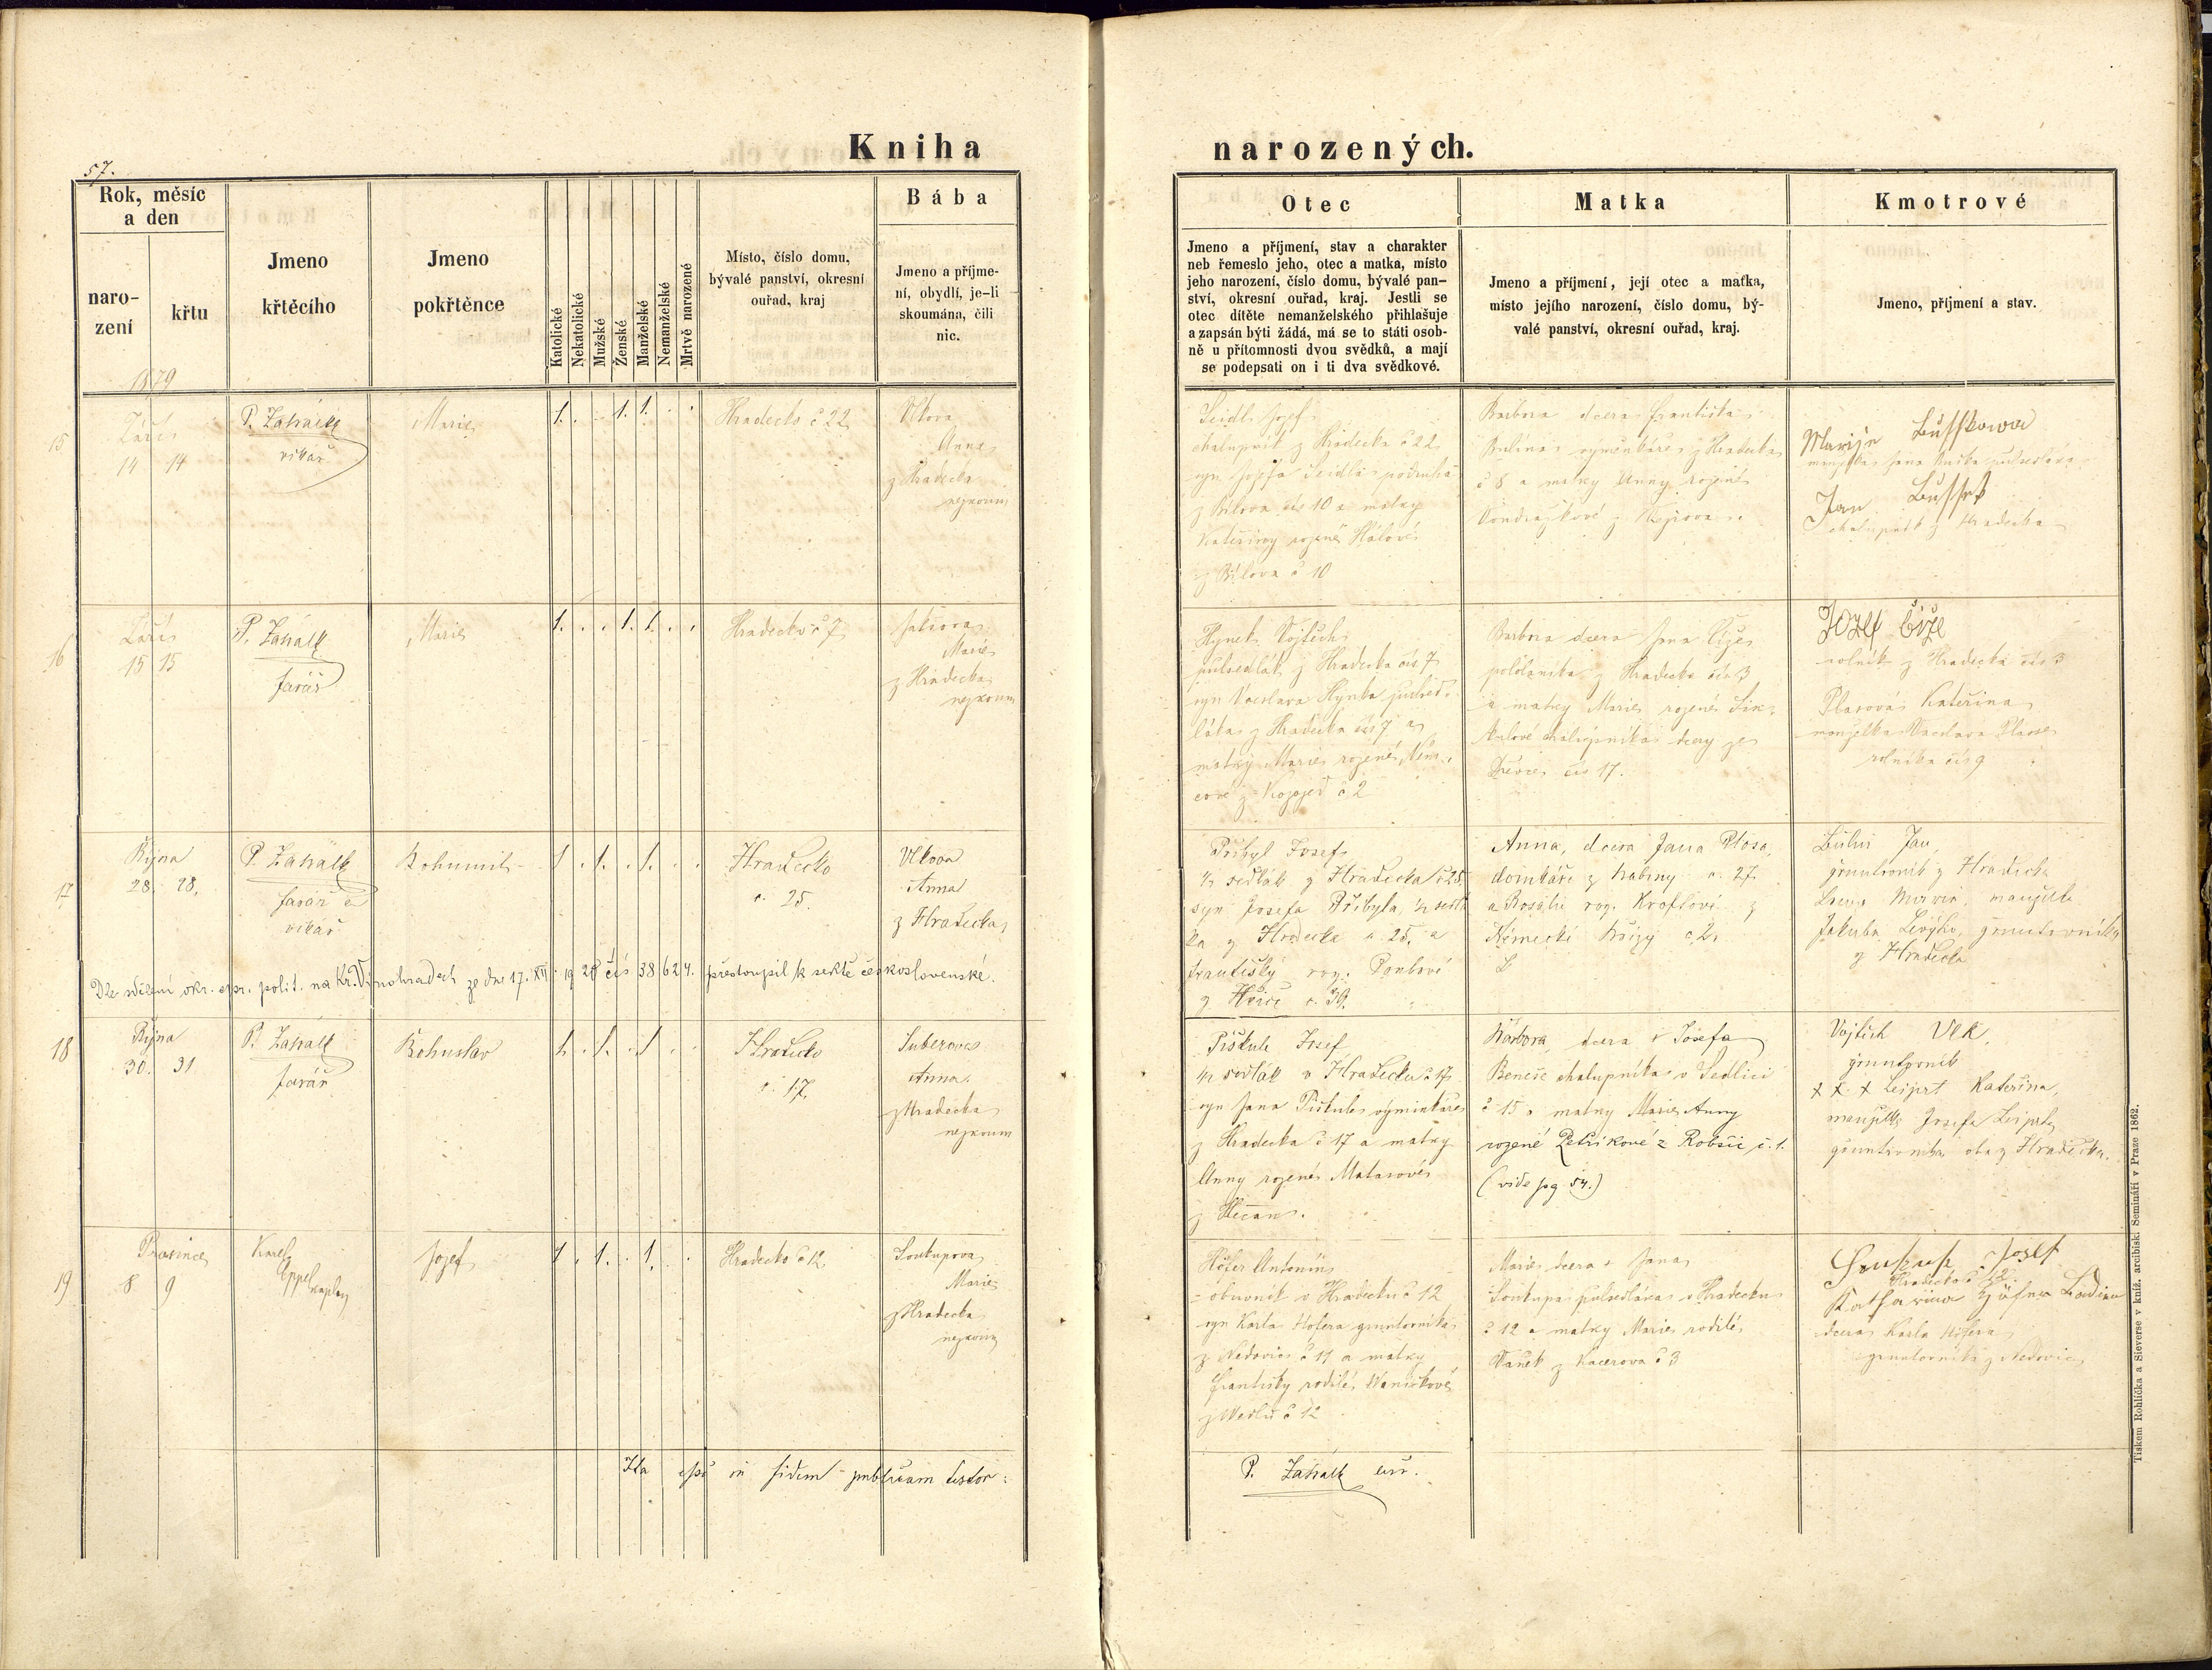 Kniha narozených.
57.
Rok, měsíc
a den
naro-
zení
křtu
Jmeno
křtěcího
Jmeno
pokřtěnce
Katolické
Nekatolické
Mužské
Ženské
Manželské
Nemanželské
Mrtvě narozené
Místo, číslo domu,
bývalé panství, okresní
ouřad, kraj
Bába
Jmeno a příjme-
ní, obydlí, je-li
skoumána, čili
nic.
Otec
Jmeno a příjmení, stav a charakter
neb řemeslo jeho, otec a matka, místo
jeho narození, číslo domu, bývalé pan-
ství, okresní ouřad, kraj. Jestli se
otec dítěte nemanželského přihlašuje
a zapsán býti žádá, má se to státi osob-
ně u přítomnosti dvou svědků, a mají
se podepsati on i ti dva svědkové.
Matka
Jmeno a příjmení, její otec a matka,
místo jejího narození, číslo domu, bý-
valé panství, okresní ouřad, kraj.
Kmotrové
Jmeno, příjmení a stav.
1879
15
Září
14 14
vikář
Marie
1. 1. 1.
Hradecko č 22
Vlkova
Anna
z Hradecka
nezkoum
Seidl Josef
chalupník z Hradecka č 22
syn Josefa Seidla podruha
z Bílova čís 10 a matky
Kateřiny rozené Hálové
z Bílova č 10
Barbora dcera Františka
výměnkáře z Hradecka
č 8 a matky Anny rozené
Vondrážkové z
Marije Busskowa
manželka Jana
Jan Bussek
chalupník z Hradecka
16
Září
15 15
farář
Marie
1. 1. 1.
Hradecko č 7
Marie
z Hradecka
nezkoum
Hynek Vojtěch
půlsedlák z Hradecka čís 7
syn Václava Hynka půlsed-
láka z Hradecka čís 7 a
matky Marie rozené Něm-
cové z Kozojed č 2
Barbora dcera Jana Číže
pololáníka z Hradecka čís 3
a matky Marie rozené
chalupníka dcery ze
Dřevce čís 17.
Jozef Číže
rolník z Hradecka čís 3
Plasová Kateřina
manželka Václava
rolníka čís 9
17
Října
28. 28.
farář a
vikář
Bohumil
1. 1. 1.
Hradecko
č. 25.
Vlkova
Anna
z Hradecka
Přibyl Josef
1/2 sedlák z Hradecka č 25,
syn Josefa Přibyla, 1/2 sedlá-
ka z Hradecka č. 25. a
Františky roz.
č. 39.
Anna, dcera Jana Plosa,
domkáře z č. 27.
a Rosalie roz. Kroftové z
Německé Břízy č 2.
Jan,
gruntovník z Hradecka
manželka
Jakuba gruntovníka
z Hradecka
Dle sdělení okr. spr. polit. na Kr. Vinohradech ze dne 17. XII. 1920 čís 38624. přestoupil k sektě československé.
18
Října
30. 31.
farář
Bohuslav
1. 1. 1
Hradecko
č. 17.
Suberova
Anna.
z Hradecka
nezkoum
Pískule Josef
1/2 sedlák v Hradecku č 17
syn Jana Pískule výminkáře
z Hradecka č 17 a matky
Anny rozené Matasové
z
Barbora, dcera Josefa
Beneše chalupníka v Sedlici
č 15 a matky Marie Anny
rozené Petříkové z Robčic č. 1.
(vide pg 54.)
Vojtěch Vlk,
gruntovník
x x x Leiprt Kateřina,
manželka Josefa
gruntovníka oba z Hradecka.
19
Prosince
8 9
Karel
Eppel kaplan
Jozef
1. 1. 1.
Hradecko č 12
Soukupova
Marie
z Hradecka
nezkoum
Höfer Antonín
obuvník v Hradecku č 12
syn Karla Höfera gruntovníka
z Nedovic č 11 a matky
Františky rodilé Vaníčkové
č 12
Marie dcera Jana
Soukupa půlsedláka v Hradecku
č 12 a matky Marie rodilé
Vaněk z Kacerova č 3
Soukup Josef
Hradecko č 12.
Katharina Höfer
dcera Karla Höfera
gruntovníka z Nedovic
Ita in fidem publicam testor:
Tiskem Rohlíčka a Sieverse v kníž. arcibisk. Semináři v Praze 1862.